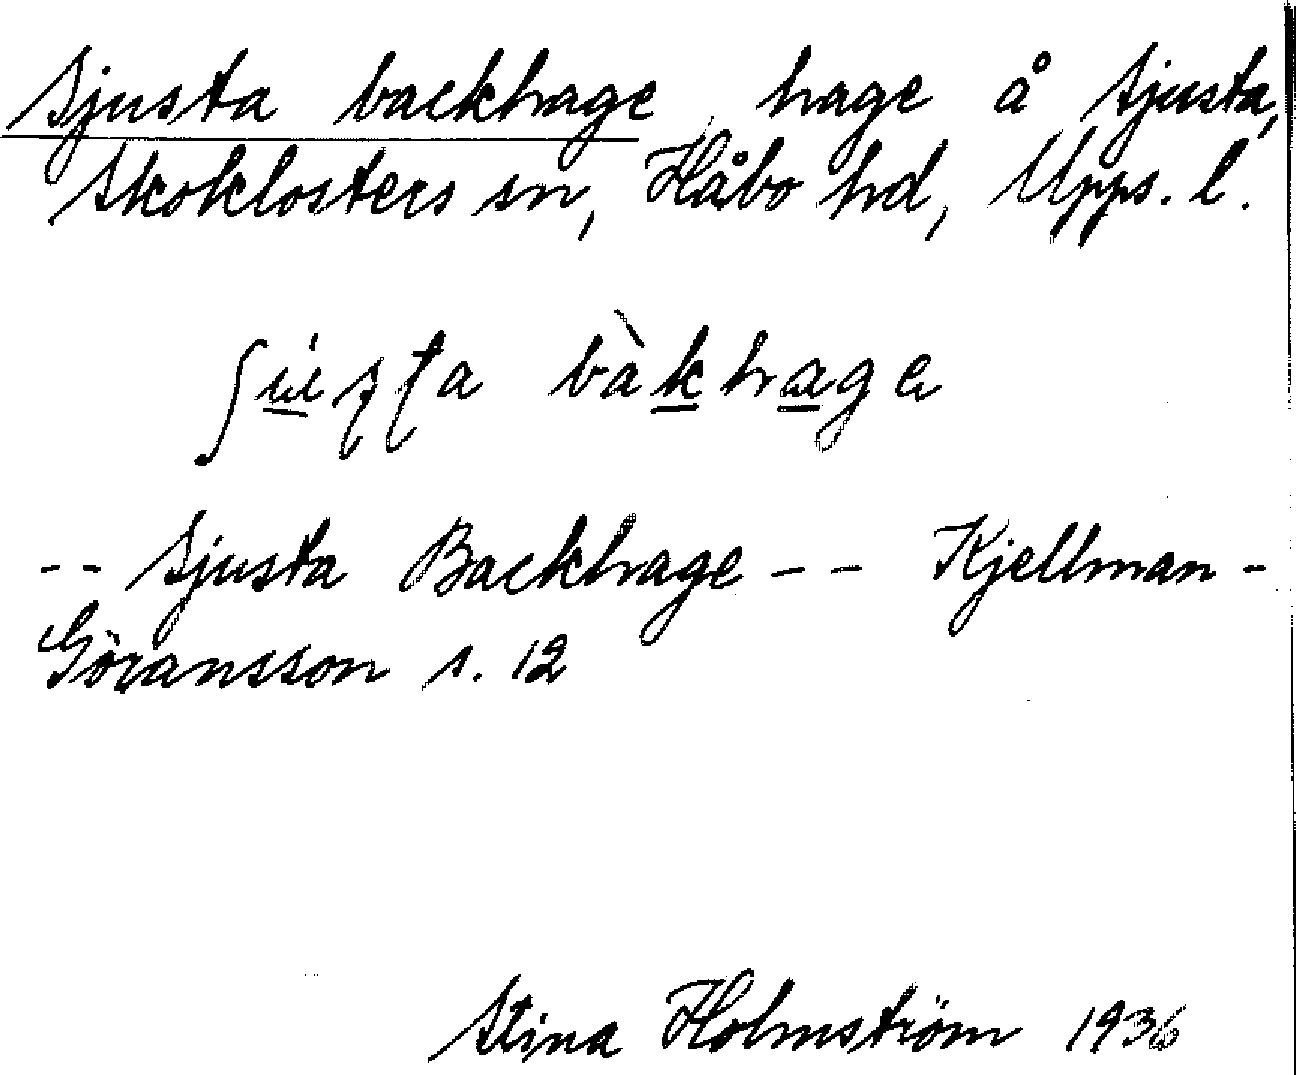 Sjusta backhage, hage å Sjusta,
Skoklosters sn, Håbo hd, Upps. l.
bàkhage
-- Sjusta Backhage -- Kjellman-
Göransson s. 12
Stina Holmström 1936